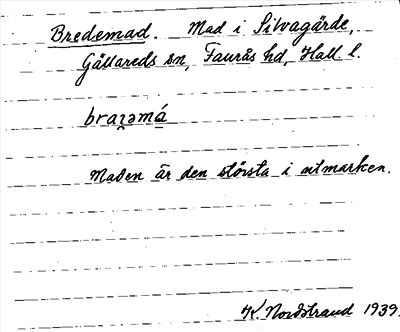 Bredemad. Mad i Silvagärde,
Gällareds sn, Faurås hd, Hall. l.
braʒəmá
Maden är den största i utmarken.
K. Nordstrand 1939.